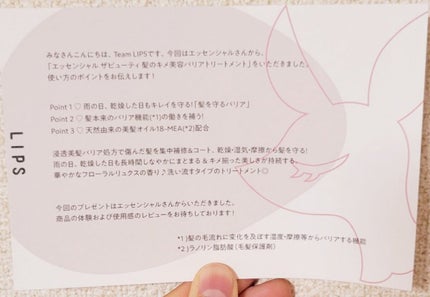 みなさんこんにちは、Team LIPSです。今回はエッセンシャルさんから、
「エッセンシャル ザビューティ 髪のキメ美容バリアトリートメント」をいただきました。
使い方のポイントをお伝えします！
Point 1 ♡ 雨の日、乾燥した日もキレイを守る！「髪を守るバリア」
Point 2 ♡ 髪本来のバリア機能(*1)の働きを補う！
Point 3 ♡ 天然由来の美髪オイル18-MEA(*2)配合
浸透美髪バリア処方で傷んだ髪を集中補修&コート、乾燥・湿気・摩擦から髪を守る！
雨の日、乾燥した日も長時間しなやかにまとまる & キメ揃った美しさが持続する、
華やかなフローラルリュクスの香り♪洗い流すタイプのトリートメント◎
今回のプレゼントはエッセンシャルさんからいただきました。
商品の体験および使用感のレビューをお待ちしております！
*1)髪の毛流れに変化を及ぼす湿度・摩擦等からバリアする機能
*2)ラノリン脂肪酸(毛髪保護剤)
LIPS